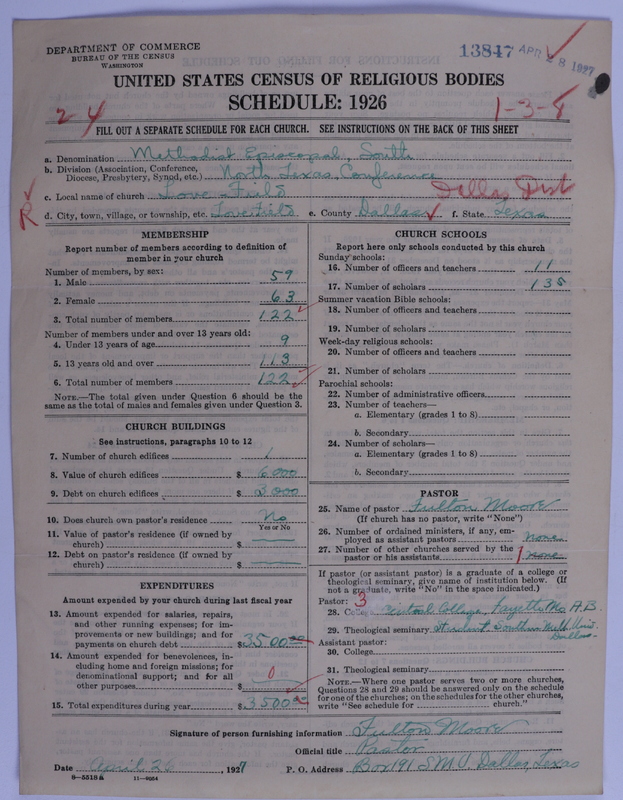 DEPARTMENT OF COMMERCE
BUREAU OF THE CENSUS
WASHINGTON
13847 APR 28 1927
UNITED STATES CENSUS OF RELIGIOUS BODIES
SCHEDULE: 1926
24
1-3-8
FILL OUT A SEPARATE SCHEDULE FOR EACH CHURCH. SEE INSTRUCTIONS ON THE BACK OF THIS SHEET
a. Denomination Methodist Episcopal, South
b. Division (Association, Conference, Diocese, Presbytery, Synod, etc.) North Texas Conference
c. Local name of church Love Field Dallas Dist
R
d. City, town, village, or township, etc. Lovefield e. County Dallas f. State Texas
MEMBERSHIP
Report number of members according to definition of
member in your church
Number of members, by sex:
1. Male 59
2. Female 63
3. Total number of members 122
Number of members under and over 13 years old:
4. Under 13 years of age 9
5. 13 years old and over 113
6. Total number of members 122
NOTE.—The total given under Question 6 should be
same as the total of males and females given under Question 3.
CHURCH BUILDINGS
See instructions, paragraphs 10 to 12
7. Number of church edifices 1
8. Value of church edifices $ 6000
9. Debt on church edifices $ 3000
10. Does church own pastor's residence No
Yes or No
11. Value of pastor's residence (if owned by
church) $
12. Debt on pastor's residence (if owned by
church) $
EXPENDITURES
Amount expended by your church during last fiscal year
13. Amount expended for salaries, repairs,
and other running expenses; for im-
provements or new buildings; and for
payments on church debt $ 3500
14. Amount expended for benevolences, in-
cluding home and foreign missions; for
denominational support; and for all
other purposes $ 0
15. Total expenditures during year $ 3500
CHURCH SCHOOLS
Report here only schools conducted by this church
Sunday schools:
16. Number of officers and teachers 11
17. Number of scholars 135
Summer vacation Bible schools:
18. Number of officers and teachers
19. Number of scholars
Week-day religious schools:
20. Number of officers and teachers
21. Number of scholars
Parochial schools:
22. Number of administrative officers
23. Number of teachers—
a. Elementary (grades 1 to 8)
b. Secondary
24. Number of scholars—
a. Elementary (grades 1 to 8)
b. Secondary
PASTOR
25. Name of pastor Fulton Moore
(If church has no pastor, write "None")
26. Number of ordained ministers, if any, em-
ployed as assistant pastors none
27. Number of other churches served by the
pastor or his assistants 1 none
If pastor (or assistant pastor) is a graduate of a college or
theological seminary, give name of institution below. (If
not a graduate, write "No" in the space indicated.)
Pastor: 3
28. College Central College, Fayette Mo A.B.
29. Theological seminary Student Southern Meth Univ. Dallas
Assistant pastor:
30. College
31. Theological seminary
NOTE.—Where one pastor serves two or more churches,
Questions 28 and 29 should be answered only on the schedule
for one of the churches; on the schedules for the other churches,
write "See schedule for church."
Signature of person furnishing information Fulton Moore
Official title Pastor
Date April 26, 1927 P. O. Address Box 191 S.M.U. Dallas, Texas
8-5518 A 11-9054